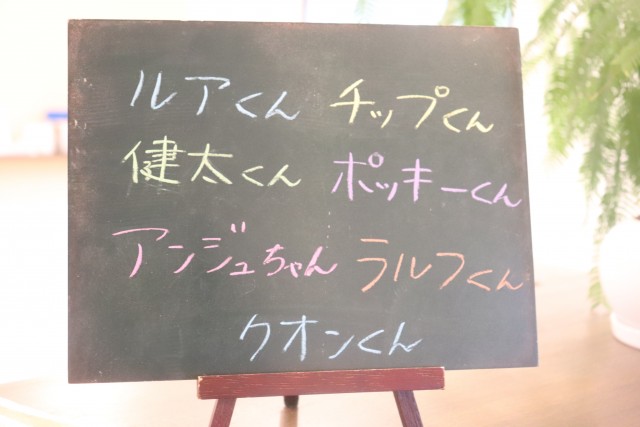 ルアくん チップくん
健太くん ポッキーくん
アンジュちゃん ラルフくん
クオンくん